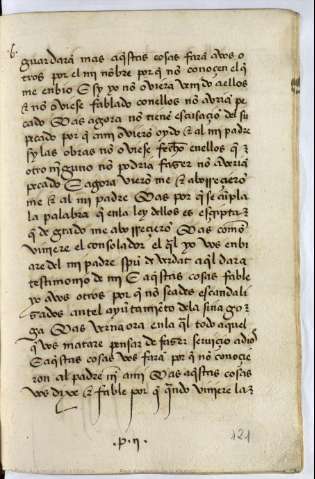 guardaran mas aqstas cosas fara avos o
tros por el mi nõbre por q̃ nõ conocen el q̃
me enbio E sy yo nõ oviera venido a ellos
& nõ oviese fablado con ellos nõ avriã pe
cado Mas agora nõ tiene escusaçiõ de su
pecado por q̃ a mi oviero oydo & al mi padre
sy las obras nõ oviese fecho en ellos q̃
otro ninguno nõ podria fazer nõ averiã
pecado E agora vierõ me & aborreçierõ
me & al mi padre Mas por q̃ se cũpla
la palabra q̃ en la ley dellos es escripta
q̃ de grado me aborreçierõ Mas como
viniere el consolador el q̃l yo vos enbi
are del mi padre spũ de verdat aq̃l dara
testimonio de mi E aq̃stas cosas fable
yo avos otros por q̃ nõ seades escandali
zados ante el ayũtamiẽto dela sinago
ga Mas verna ora enla q̃l todo aquel
q̃ vos matare pensar de fazer serviçio a dios
E aq̃stas cosas vos farã por q̃ nõ conoçie
ron al padre nĩ ami Mas aq̃stas cosas
vos dixe & fable por q̃ q̃ndo viniere la
.p.ii.
121